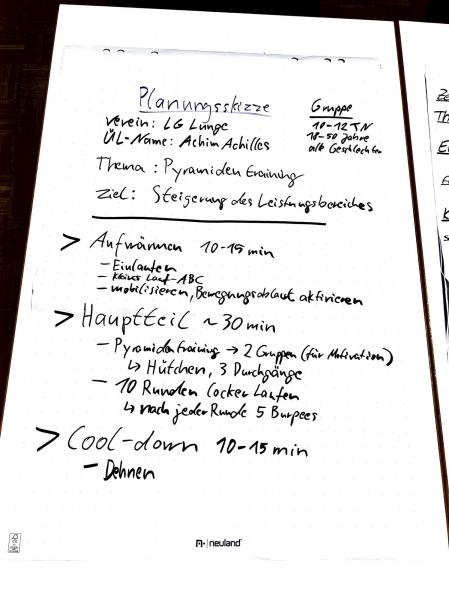 Planungsskizze
Verein: LG Lunge
ÜL-Name: Achim Achilles
Gruppe
10-12 TN
18-50 Jahre
alle Geschlechter
Thema: Pyramidentraining
Ziel: Steigerung des Leistungsbereiches
> Aufwärmen 10-15 min
- Einlaufen
- kleines Lauf-ABC
- mobilisieren, Bewegungsablauf aktivieren
> Hauptteil ~30 min
- Pyramidentraining → 2 Gruppen (für Motivation)
↳ Hütchen, 3 Durchgänge
- 10 Runden locker Laufen
↳ nach jeder Runde 5 Burpees
> Cool-down 10-15 min
- Dehnen
neuland
Th